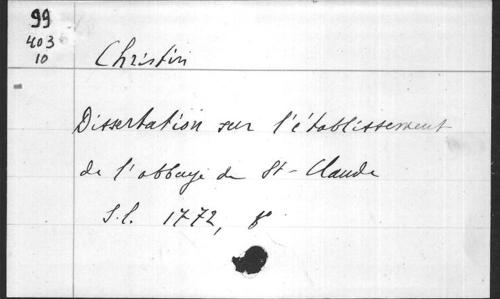 99
403
10
Christin
Dissertation sur l'établissement
de l'abbaye de St-Claude
S.l. 1772, 8°